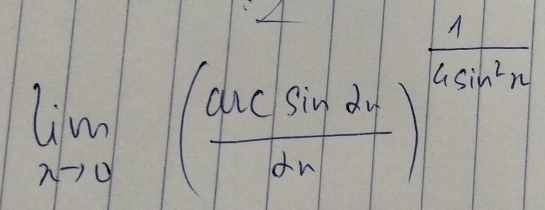 lim x→0 (arc sin 2x / 2x)^(1 / 4sin²x)